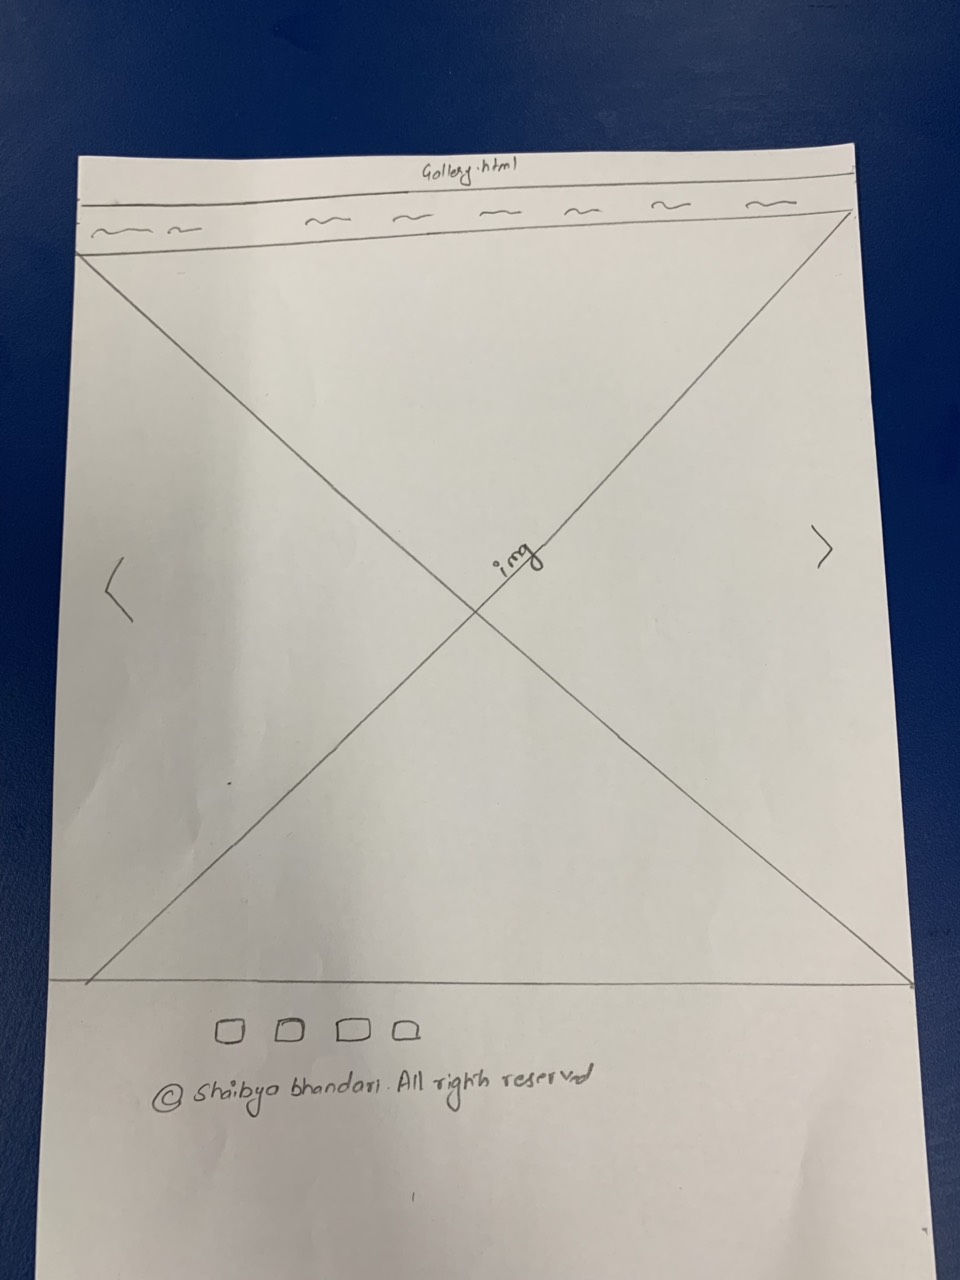 Gallery.html
img
© Shaibya bhandari. All rights reserved